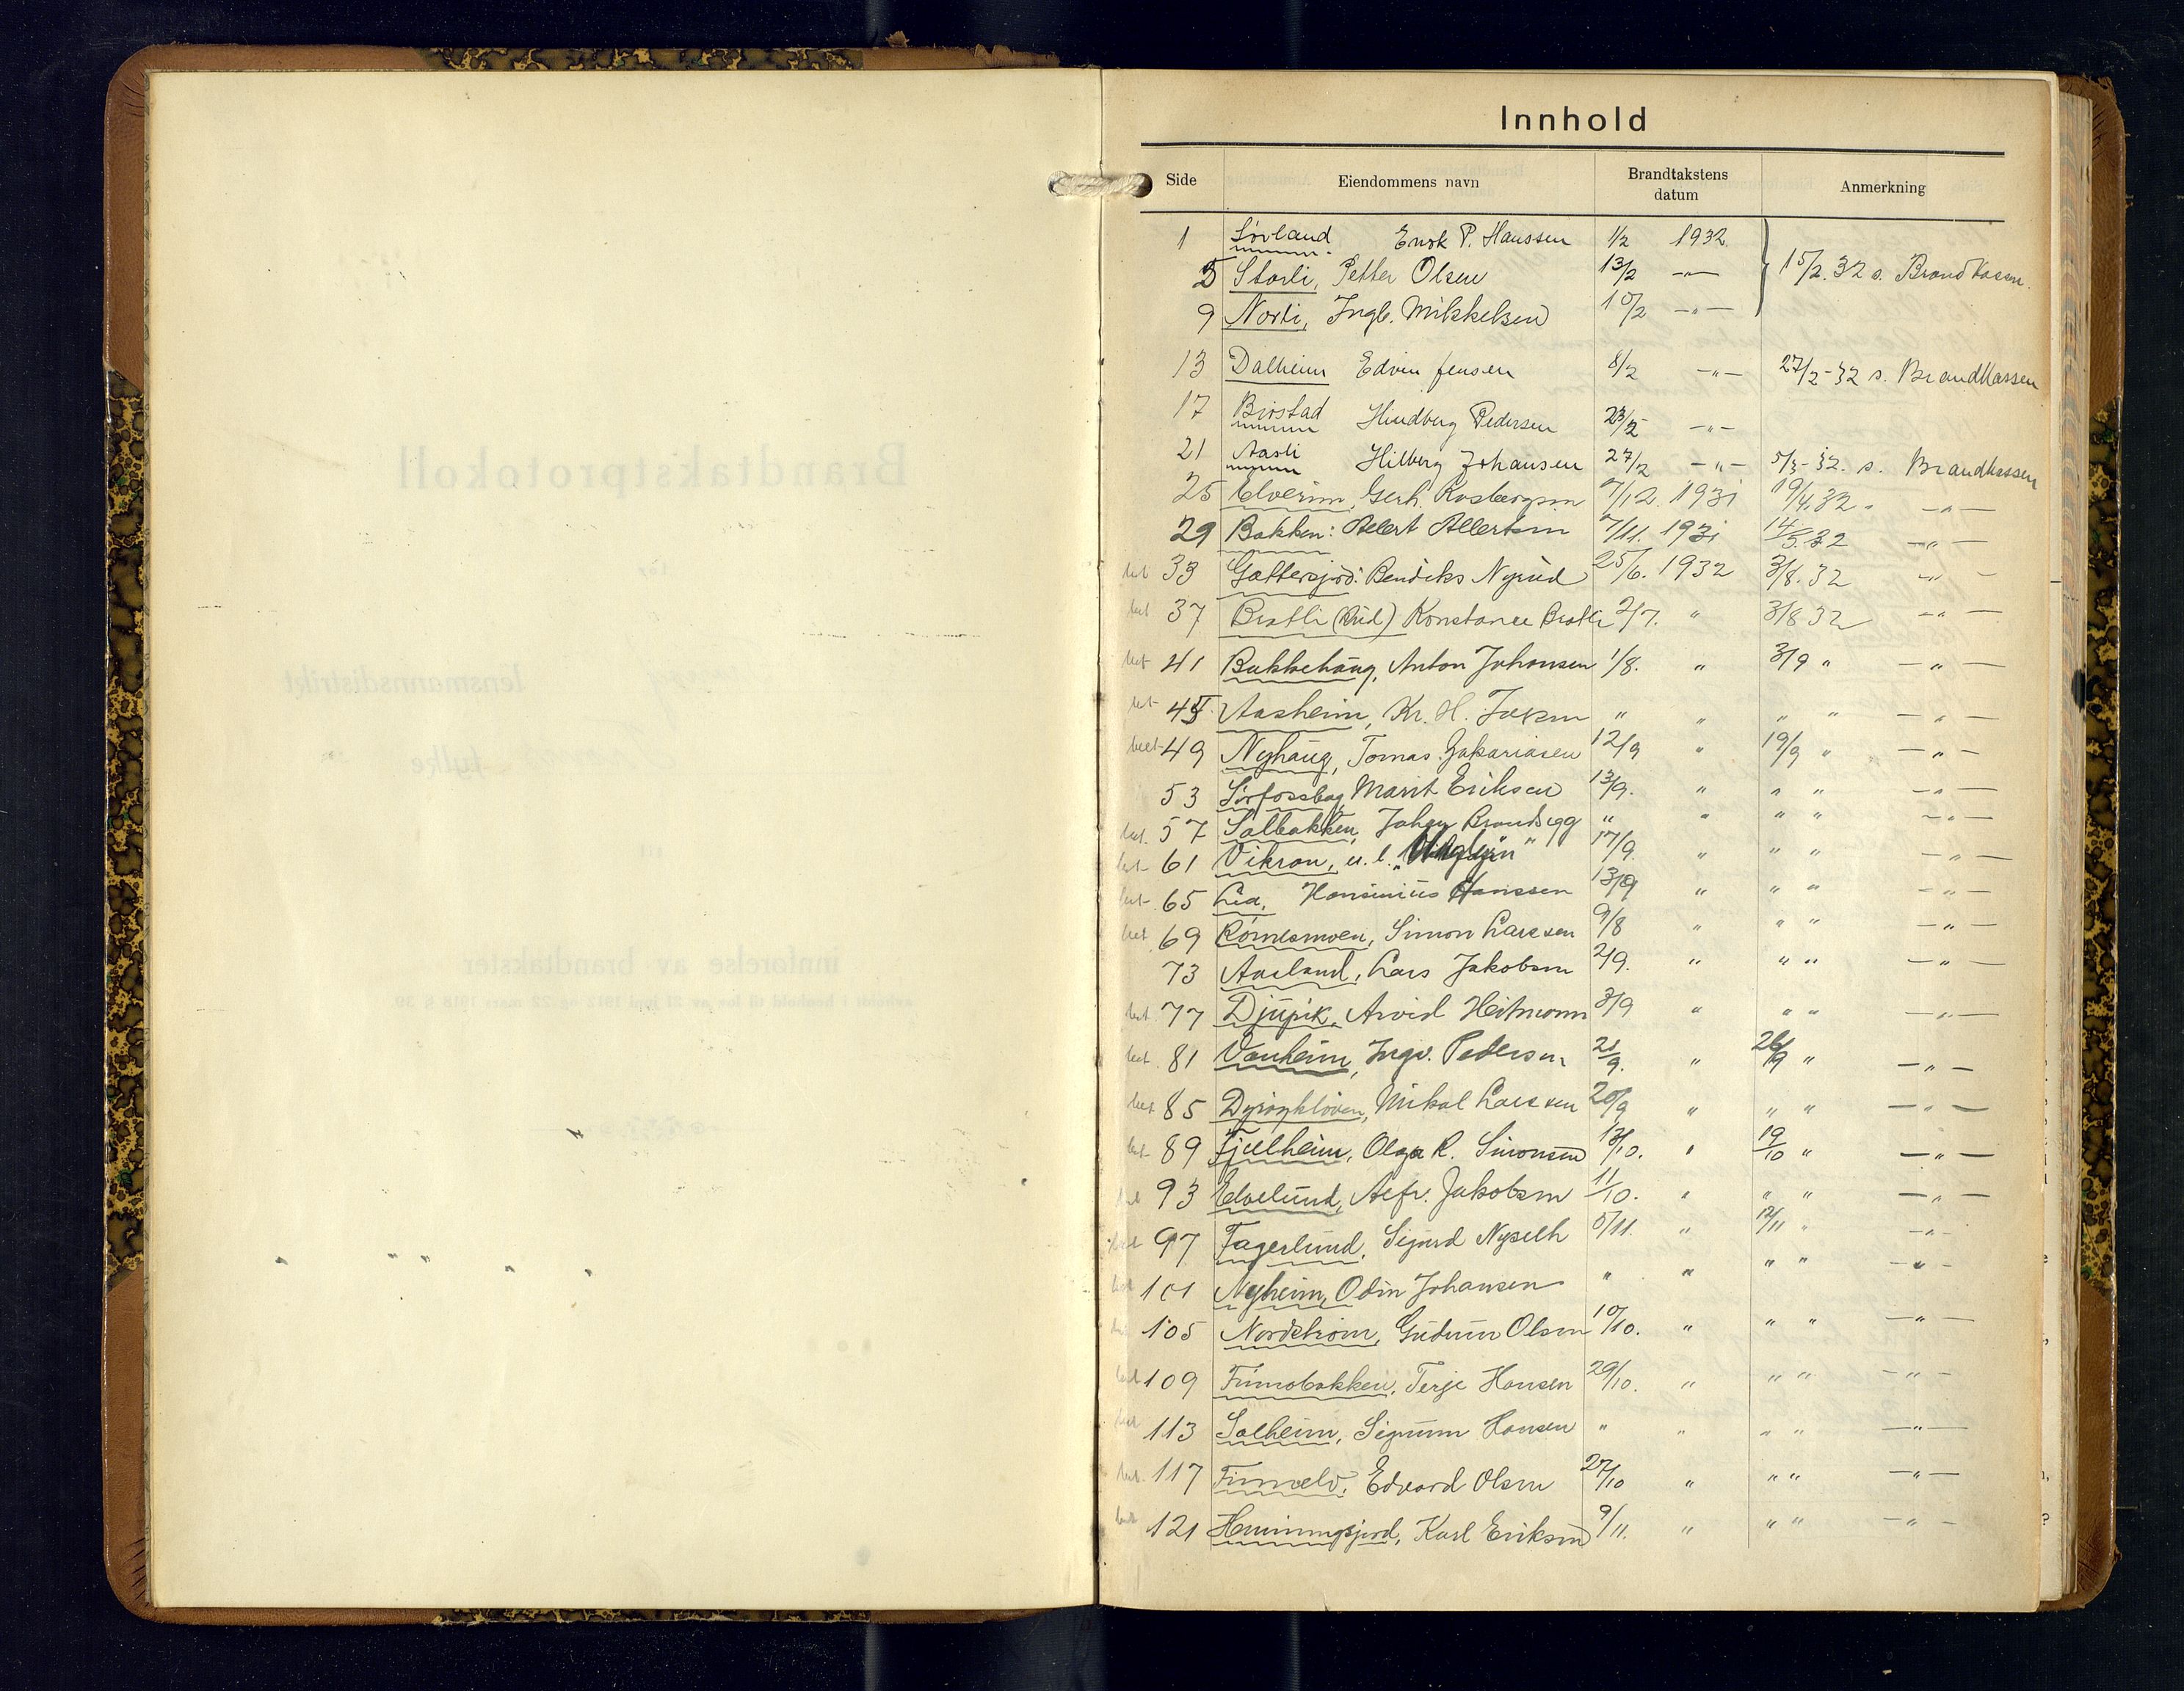 Innhold
Side Eiendommens navn Brandtakstens datum Anmerkning
1 Sørland Enok P. Hanssen 1/2 1932
5 Storli, Petter Olsen 13/2 -"- 15/2.32 s. Brandkassen.
9 Norli, Ingb. Mikkelsen 10/2 -"-
13 Dalheim Edvin Jensen 8/2 -"- 27/2-32 s. Brandkassen
17 Birostad Hindberg Pedersen 23/2 -"-
21 Aasli Hilberg Johansen 27/2 -"- 5/3-32. s. Brandkassen
25 Elverum, Gerh. 7/12. 1931 19/4.32. -"-
29 Bakken: Allert Allertsen 7/11. 1931 14/5.32 -"-
bet 33 Bendiks Nyrud 25/6. 1932 3/8.32 -"-
bet 37 Bratli (Rud) Konstance Bratli 2/7. " 3/8 32 -"-
bet 41 Bakkehaug, Anton Johansen 1/8. " 3/9 " -"-
bet 45 Aasheim, Kr. H. " " " " -"-
bet 49 Nyhaug, Tomas Zakariasen 12/9 " 19/9 " -"-
53 Marit Eriksen 13/9. " " " -"-
bet. 57 Solbakken, Johan " " " " -"-
bet 61 Vikran, u. l. 17/9. " " " -"-
bet 65 Lia, Hansinius Hanssen 13/9 " " " -"-
bet 69 Simon Larssen 9/8 " " " -"-
73 Aasland, Lars Jakobsen 2/9. " " " -"-
bet 77 Djupvik, Arvid Heitmann 3/9 " " " -"-
bet. 81 Vanheim, Ingv. Pedersen 21/9. " 26/9 " -"-
bet 85 Mikal Larssen 20/9 " " " -"-
bet 89 Fjellheim, Olga R. Simonsen 13/10. " 19/10 " -"-
bet 93 Elvelund, Alfr. Jakobsen 11/10. " " " -"-
bet 97 Fagerlund, Sigurd Nyseth 5/11. " 12/11 " -"-
bet 101 Nyheim, Odin Johansen " " " " -"-
bet 105 Nordstrøm, Gudrun Olsen 10/10. " " " -"-
bet 109 Finnobakken, Terje Hansen 29/10. " " " -"-
bet 113 Solheim, Sigrunn Hansen " " " " -"-
bet. 117 Finnelv, Edvard Olsen 27/10 " " " -"-
bet 121 Henningsjord, Karl Eriksen 9/11. " " " -"-